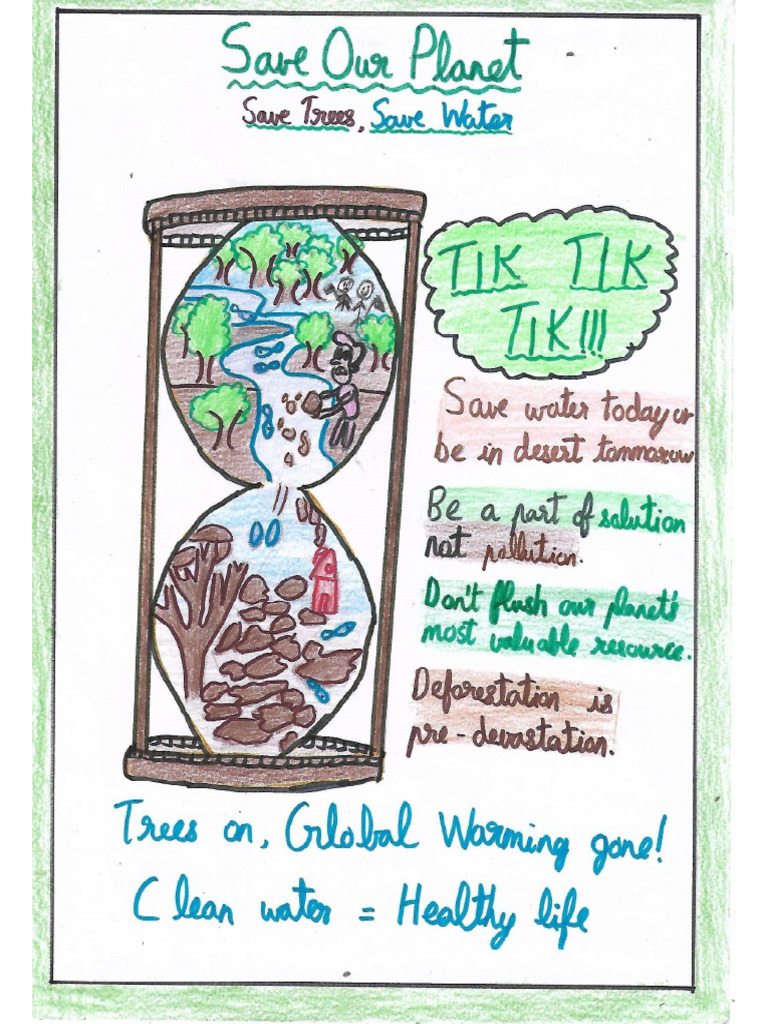 Save Our Planet
Save Trees, Save Water
TIK TIK
TIK!!!
Save water today or
be in desert tommarow
Be a part of solution
not pollution.
Don't flush our planet's
most valuable resource.
Deforestation is
pre-devastation.
Trees on, Global Warming gone!
Clean water = Healthy life